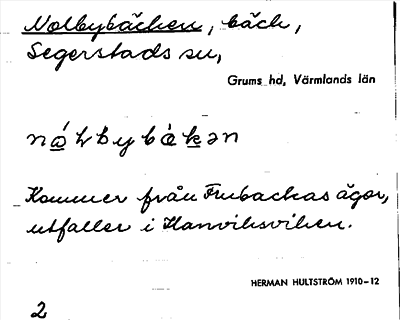 Nolbybäcken, bäck,
Segerstads sn,
Grums hd, Värmlands län
Kommer från Furbackas ägor,
utfaller i Hanviksviken.
HERMAN HULTSTRÖM 1910-12
2